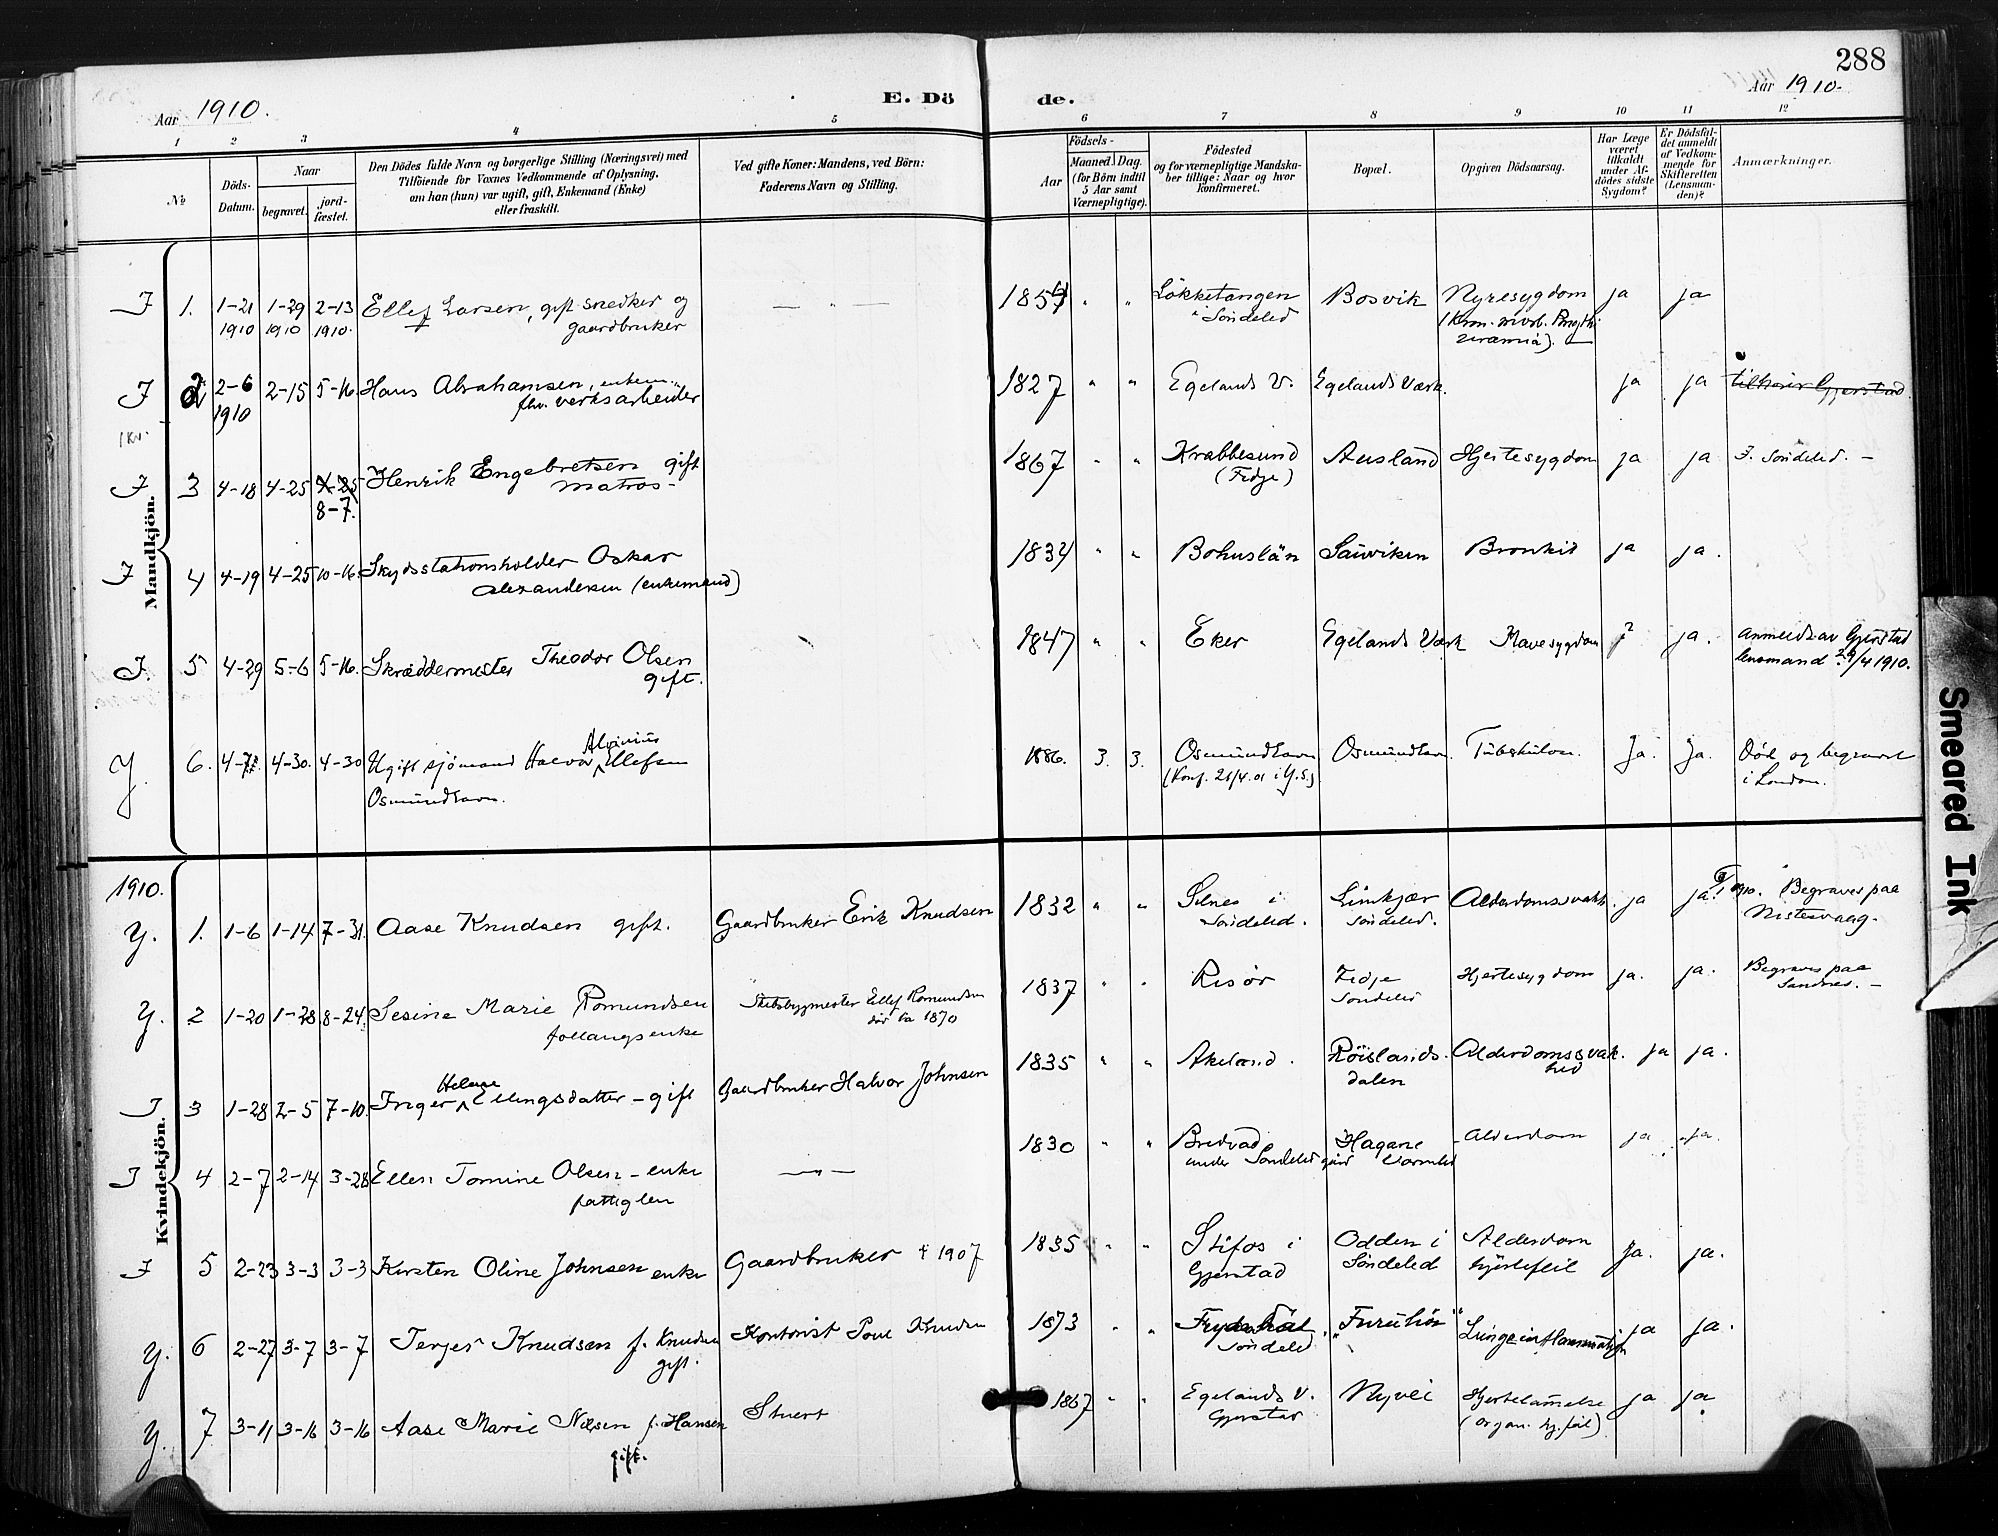 288
Aar 1910.
E. Döde.
Aar 1910.
1 2 3 4 5 6 7 8 9 10 11 12
№
Döds-Datum.
Naar
begravet.
jord-fæstet.
Den Dödes fulde Navn og borgerlige Stilling (Næringsvei) med
Tilföiende for Voxnes Vedkommende af Oplysning,
om han (hun) var ugift, gift, Enkemand (Enke)
eller fraskilt.
Ved gifte Koner: Mandens, ved Börn:
Faderens Navn og Stilling.
Födsels-
Aar
Maaned. Dag.
(for Börn indtil
5 Aar samt
Værnepligtige).
Födested
og for værnepligtige Mandska-
ber tillige: Naar og hvor
konfirmeret.
Bopæl.
Opgiven Dödsaarsag.
Har Læge
været
tilkaldt
under Af-
dödes sidste
Sygdom?
Er Dödsfal-
det anmeldt
af Vedkom-
mende for
Skifteretten
(Lensman-
den)?
Anmærkninger.
Mandkjön.
I 1. 1-21 1-29 2-13 Ellef Larsen, gift snedker og — " — 1854 " " Lökketangen Bosvik Nyresygdom ja ja
1910 1910 1910. gaardbruker i Söndeled
I 2 2-6 2-15 5-16 Hans Abrahamsen, enkem. 1827 " " Egelands V. Egelands Værk. ja ja tilhører Gjerstad
1910 fhv. verksarbeider
I 3 4-18 4-25 4-25 Henrik Engebretsen gift 1867 " " Krabbesund Ausland Hjertesygdom ja ja I. Söndeled. –
8-7. matros- (Fidje)
I 4 4-19 4-25 10-16 Skydsstationsholder Oskar 1834 " " Bohuslän Sauviken Bronkit ja ja.
Alexandersen (enkemand)
I. 5 4-29 5-6 5-16. Skræddermester Theodor Olsen 1847 " " Eker Egelands Værk Mavesygdom ? ja. anmeldt av Gjerstad
gift. lensmand 29/4 1910.
Y. 6. 4-30. 4-30 Ugift sjömand Halvor Alvinius Ellefsen 1886. 3. 3. Osmundhavn Osmundhavn Tuberkulose. Ja. Ja. Död og begravet
Osmundhavn. (Konf. 21/4.01 i Y.S.) i London.
Kvindekjön.
1910.
Y. 1. 1-6 1-14 7-31. Aase Knudsen gift. Gaardbruker Erik Knudsen 1832 " " Silnes i Limkjær Alderdomssvakh. ja ja 1910. Begraves paa
Söndeled. Söndeled. Nistesvaag-
Y. 2 1-20 1-28 8-24. Sesine Marie Romundsen Skibsbygmester Ellef Romundsen 1837 " " Risör Fidje Hjertesygdom ja. ja. Begraves paa
follangsenke död ca 1870 Söndeled Sandnes. –
I 3 1-28 2-5 7-10. Inger Helene Ellingsdatter – gift Gaardbruker Halvor Johnsen 1835 " " Akeland. Röislands- Alderdomssvak- ja ja.
dalen hed
I 4 2-7 2-14 3-28 Ellen Tomine Olsen – enke — " — 1830 " " Bredvad Hagane Alderdom ja ja.
fattiglem under Söndeled gaard
I 5 2-23 3-3 3-3 Kirsten Oline Johnsen enke Gaardbruker † 1907 1835 " " Stifos i Odden i Alderdom ja. ja.
Gjerstad Söndeled hjertefeil
Y. 6 2-27 3-7 3-7 Terjer Knudsen f. Knudsen Kontorist Poul Knudsen 1873 " " "Furuhö" Lungeinflammation ja ja.
gift. Söndeled
Y. 7 3-11 3-16 3-16 Aase Marie Nilsen f. Hansen Stuert 1867 " " Egelands V. Nyvei Hjertelammelse ja ja
gift. Gjerstad (organ. hj.feil)
Smeared Ink